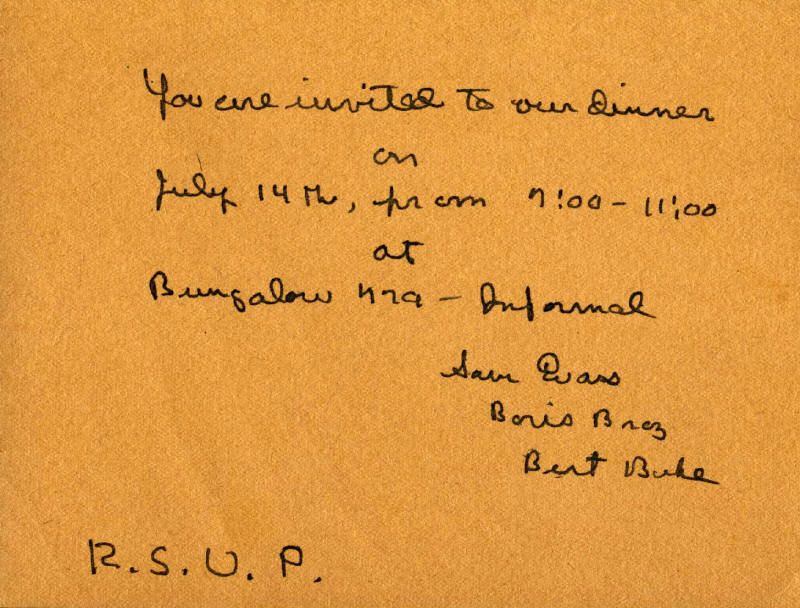 You are invited to our dinner
on
July 14th, from 7:00 - 11:00
at
Bungalow - Informal
Sam Evans
Boris Broz
Bert
R.S.V.P.